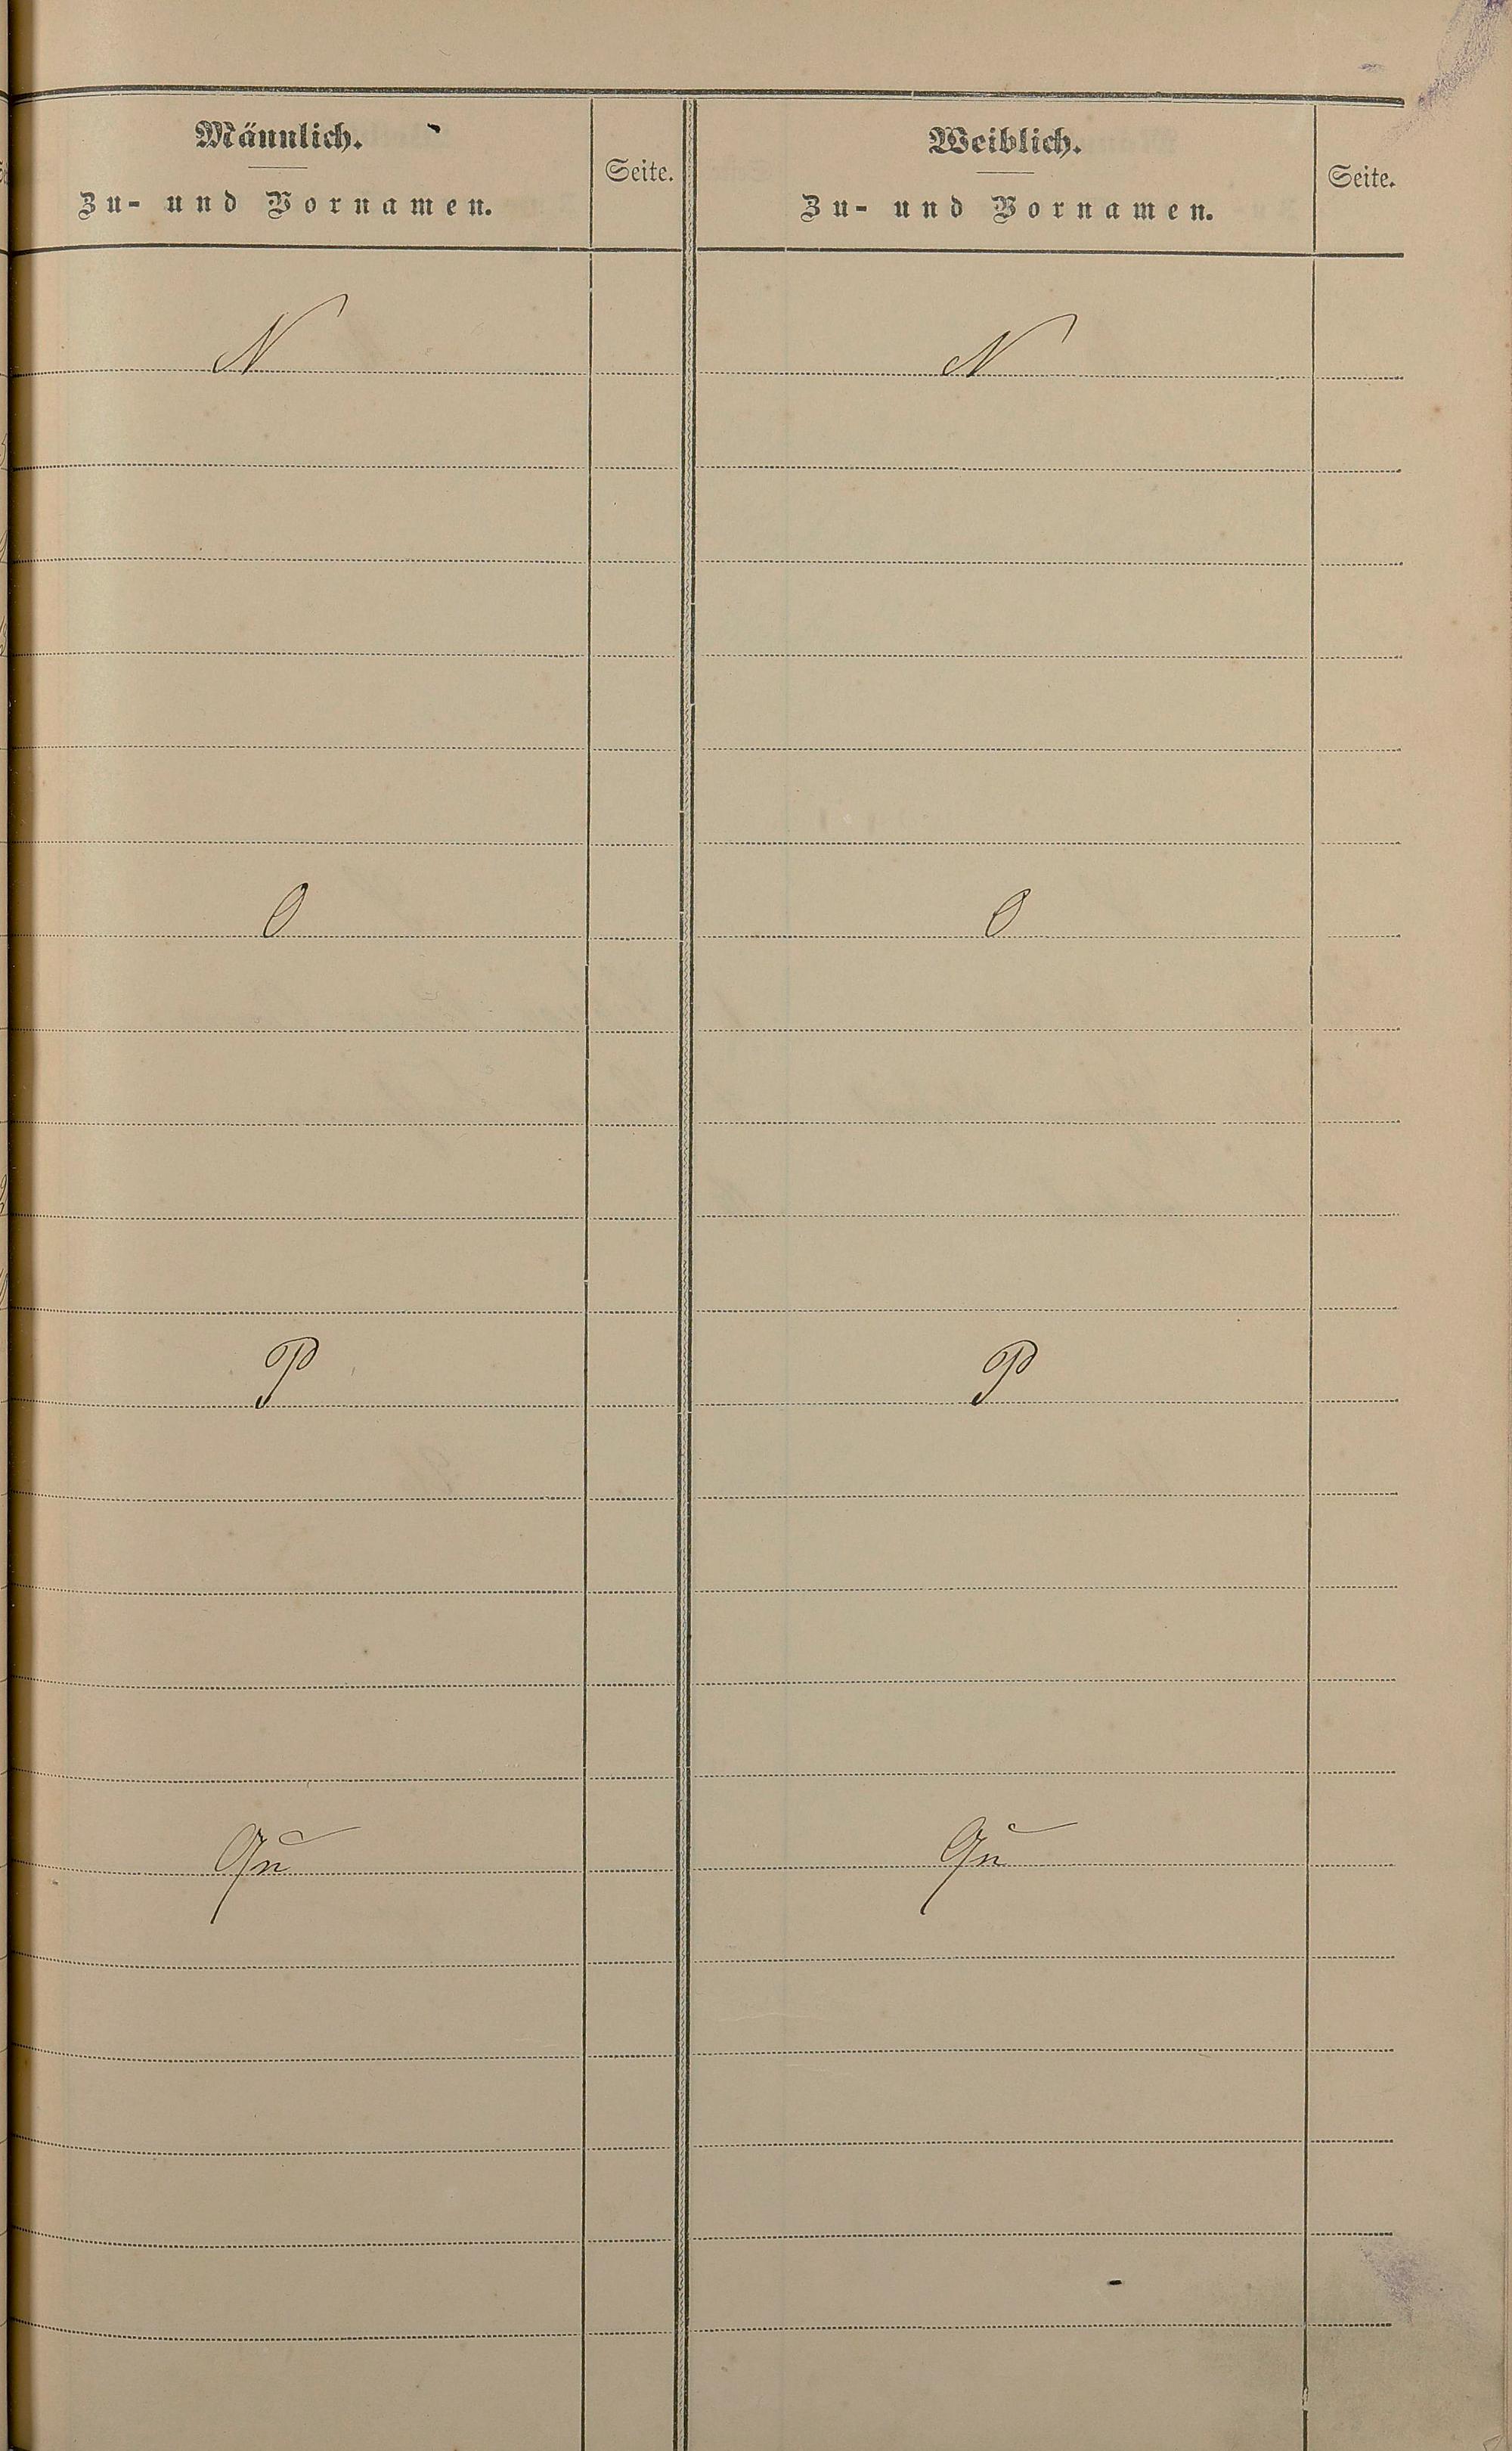 Männlich.
Zu- und Vornamen.
Seite.
Weiblich.
Zu- und Vornamen.
Seite.
N
N
O
O
P
P
Qu
Qu